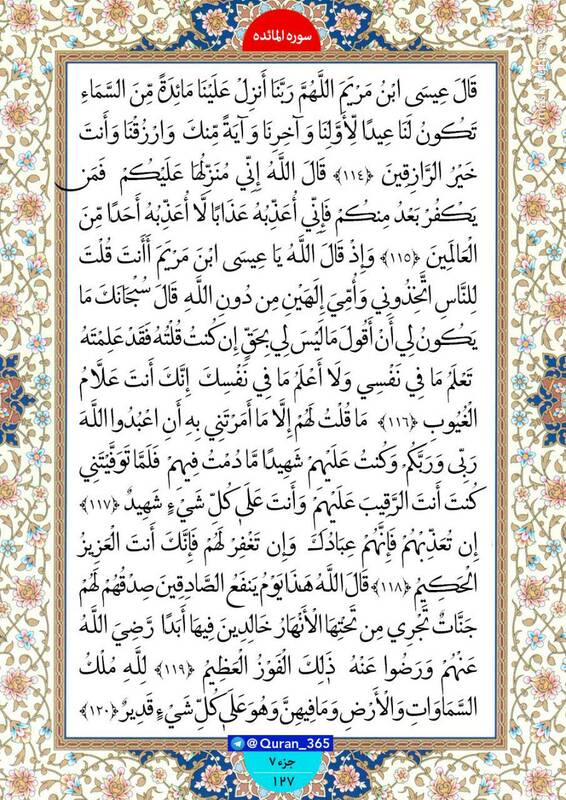 سوره المائده
قَالَ عِيسَى ابْنُ مَرْيَمَ اللَّهُمَّ رَبَّنَا أَنزِلْ عَلَيْنَا مَائِدَةً مِّنَ السَّمَاءِ
تَكُونُ لَنَا عِيدًا لِّأَوَّلِنَا وَآخِرِنَا وَآيَةً مِّنكَ وَارْزُقْنَا وَأَنتَ
خَيْرُ الرَّازِقِينَ ﴿١١٤﴾ قَالَ اللَّهُ إِنِّي مُنَزِّلُهَا عَلَيْكُمْ فَمَن
يَكْفُرْ بَعْدُ مِنكُمْ فَإِنِّي أُعَذِّبُهُ عَذَابًا لَّا أُعَذِّبُهُ أَحَدًا مِّنَ
الْعَالَمِينَ ﴿١١٥﴾ وَإِذْ قَالَ اللَّهُ يَا عِيسَى ابْنَ مَرْيَمَ أَأَنتَ قُلْتَ
لِلنَّاسِ اتَّخِذُونِي وَأُمِّيَ إِلَهَيْنِ مِن دُونِ اللَّهِ قَالَ سُبْحَانَكَ مَا
يَكُونُ لِي أَنْ أَقُولَ مَا لَيْسَ لِي بِحَقٍّ إِن كُنتُ قُلْتُهُ فَقَدْ عَلِمْتَهُ
تَعْلَمُ مَا فِي نَفْسِي وَلَا أَعْلَمُ مَا فِي نَفْسِكَ إِنَّكَ أَنتَ عَلَّامُ
الْغُيُوبِ ﴿١١٦﴾ مَا قُلْتُ لَهُمْ إِلَّا مَا أَمَرْتَنِي بِهِ أَنِ اعْبُدُوا اللَّهَ
رَبِّي وَرَبَّكُمْ وَكُنتُ عَلَيْهِمْ شَهِيدًا مَّا دُمْتُ فِيهِمْ فَلَمَّا تَوَفَّيْتَنِي
كُنتَ أَنتَ الرَّقِيبَ عَلَيْهِمْ وَأَنتَ عَلَى كُلِّ شَيْءٍ شَهِيدٌ ﴿١١٧﴾
إِن تُعَذِّبْهُمْ فَإِنَّهُمْ عِبَادُكَ وَإِن تَغْفِرْ لَهُمْ فَإِنَّكَ أَنتَ الْعَزِيزُ
الْحَكِيمُ ﴿١١٨﴾ قَالَ اللَّهُ هَذَا يَوْمُ يَنفَعُ الصَّادِقِينَ صِدْقُهُمْ لَهُمْ
جَنَّاتٌ تَجْرِي مِن تَحْتِهَا الْأَنْهَارُ خَالِدِينَ فِيهَا أَبَدًا رَّضِيَ اللَّهُ
عَنْهُمْ وَرَضُوا عَنْهُ ذَلِكَ الْفَوْزُ الْعَظِيمُ ﴿١١٩﴾ لِلَّهِ مُلْكُ
السَّمَاوَاتِ وَالْأَرْضِ وَمَا فِيهِنَّ وَهُوَ عَلَى كُلِّ شَيْءٍ قَدِيرٌ ﴿١٢٠﴾
@Quran_365
جزء ٧
١٢٧